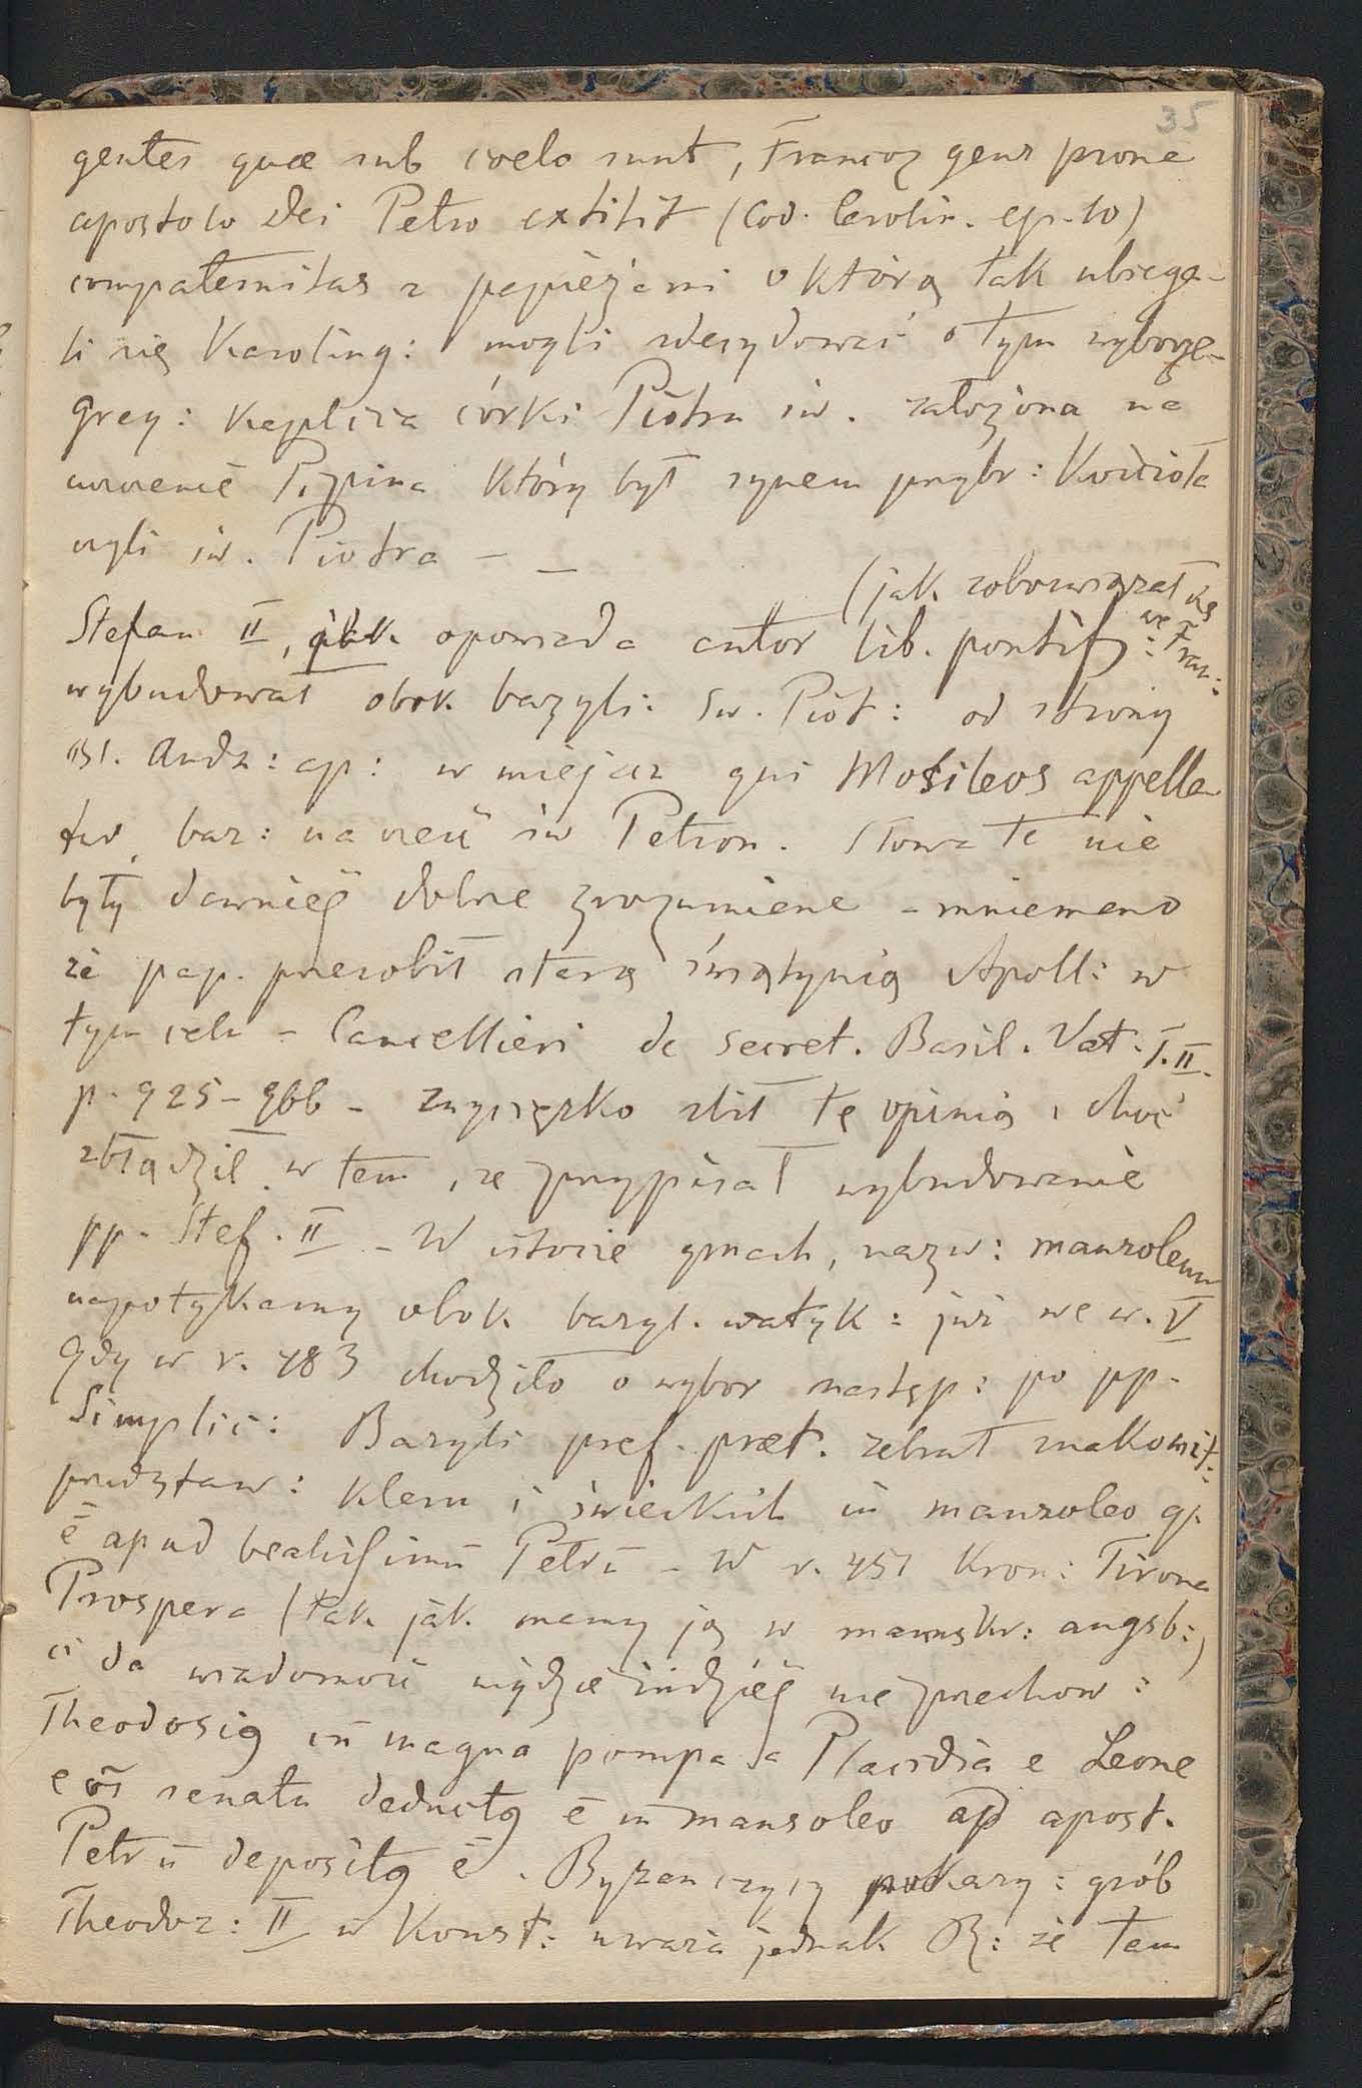 35
gentes quæ sub coelo sunt, Francoꝝ gens prona
apostolo Dei Petro extitit (Cod. Carolin. ep. 10)
compaternitas z papieżami o którą tak ubiega-
li się Karoling: mogli zdecydować o tym wyborze-
Grey: kaplica córki Piotra św. założona na
uczczenie Pipina który był synem przybr: Kościoła
czyli św. Piotra – –
(jak zobowiązał się
we Fran:
Stefan II, jak opowiada autor lib. pontif:
wybudował obok bazyli: św. Piot: od strony
bl. Andr: ap: w miejscu qui Mosileos appella
tur, baz: na cześć św Petron. Słowa te nie
były dawniej dobrze zrozumiene – mniemano
że pap. przerobił starą świątynią Apoll: w
tym celu – Cancellieri de secret. Basil. Vat. T. II.
p. 925–966 – zwycięzko zbił tę opinią, choć
zbłądził w tem, że przypisał wybudowanie
pp. Stef. II – W istocie gmach, nazw: mauzoleum
napotykamy obok bazyl. watyk: już we w. V
Gdy w r. 483 chodziło o wybor następ: po pp.
Simplic: Bazyli pref. præt. zebrał znakomit:
przedstaw: kleru i świeckich in mauzoleo q.
ē apud beatissimū Petrū – W r. 451 Kron: Tirona
Prospera (tak jak mamy ją w manuskr: augsb:)
da wiadomość nigdzie indziej nie przechow:
Theodosiꝰ cū magna pompa a Placidia e Leone
e oī senatu deductꝰ ē in mausoleo ap apost.
Petrū depositꝰ ē. Byzanczycy pokazy: grób
Theodoz: II w Konst: uważa jednak R: że tam